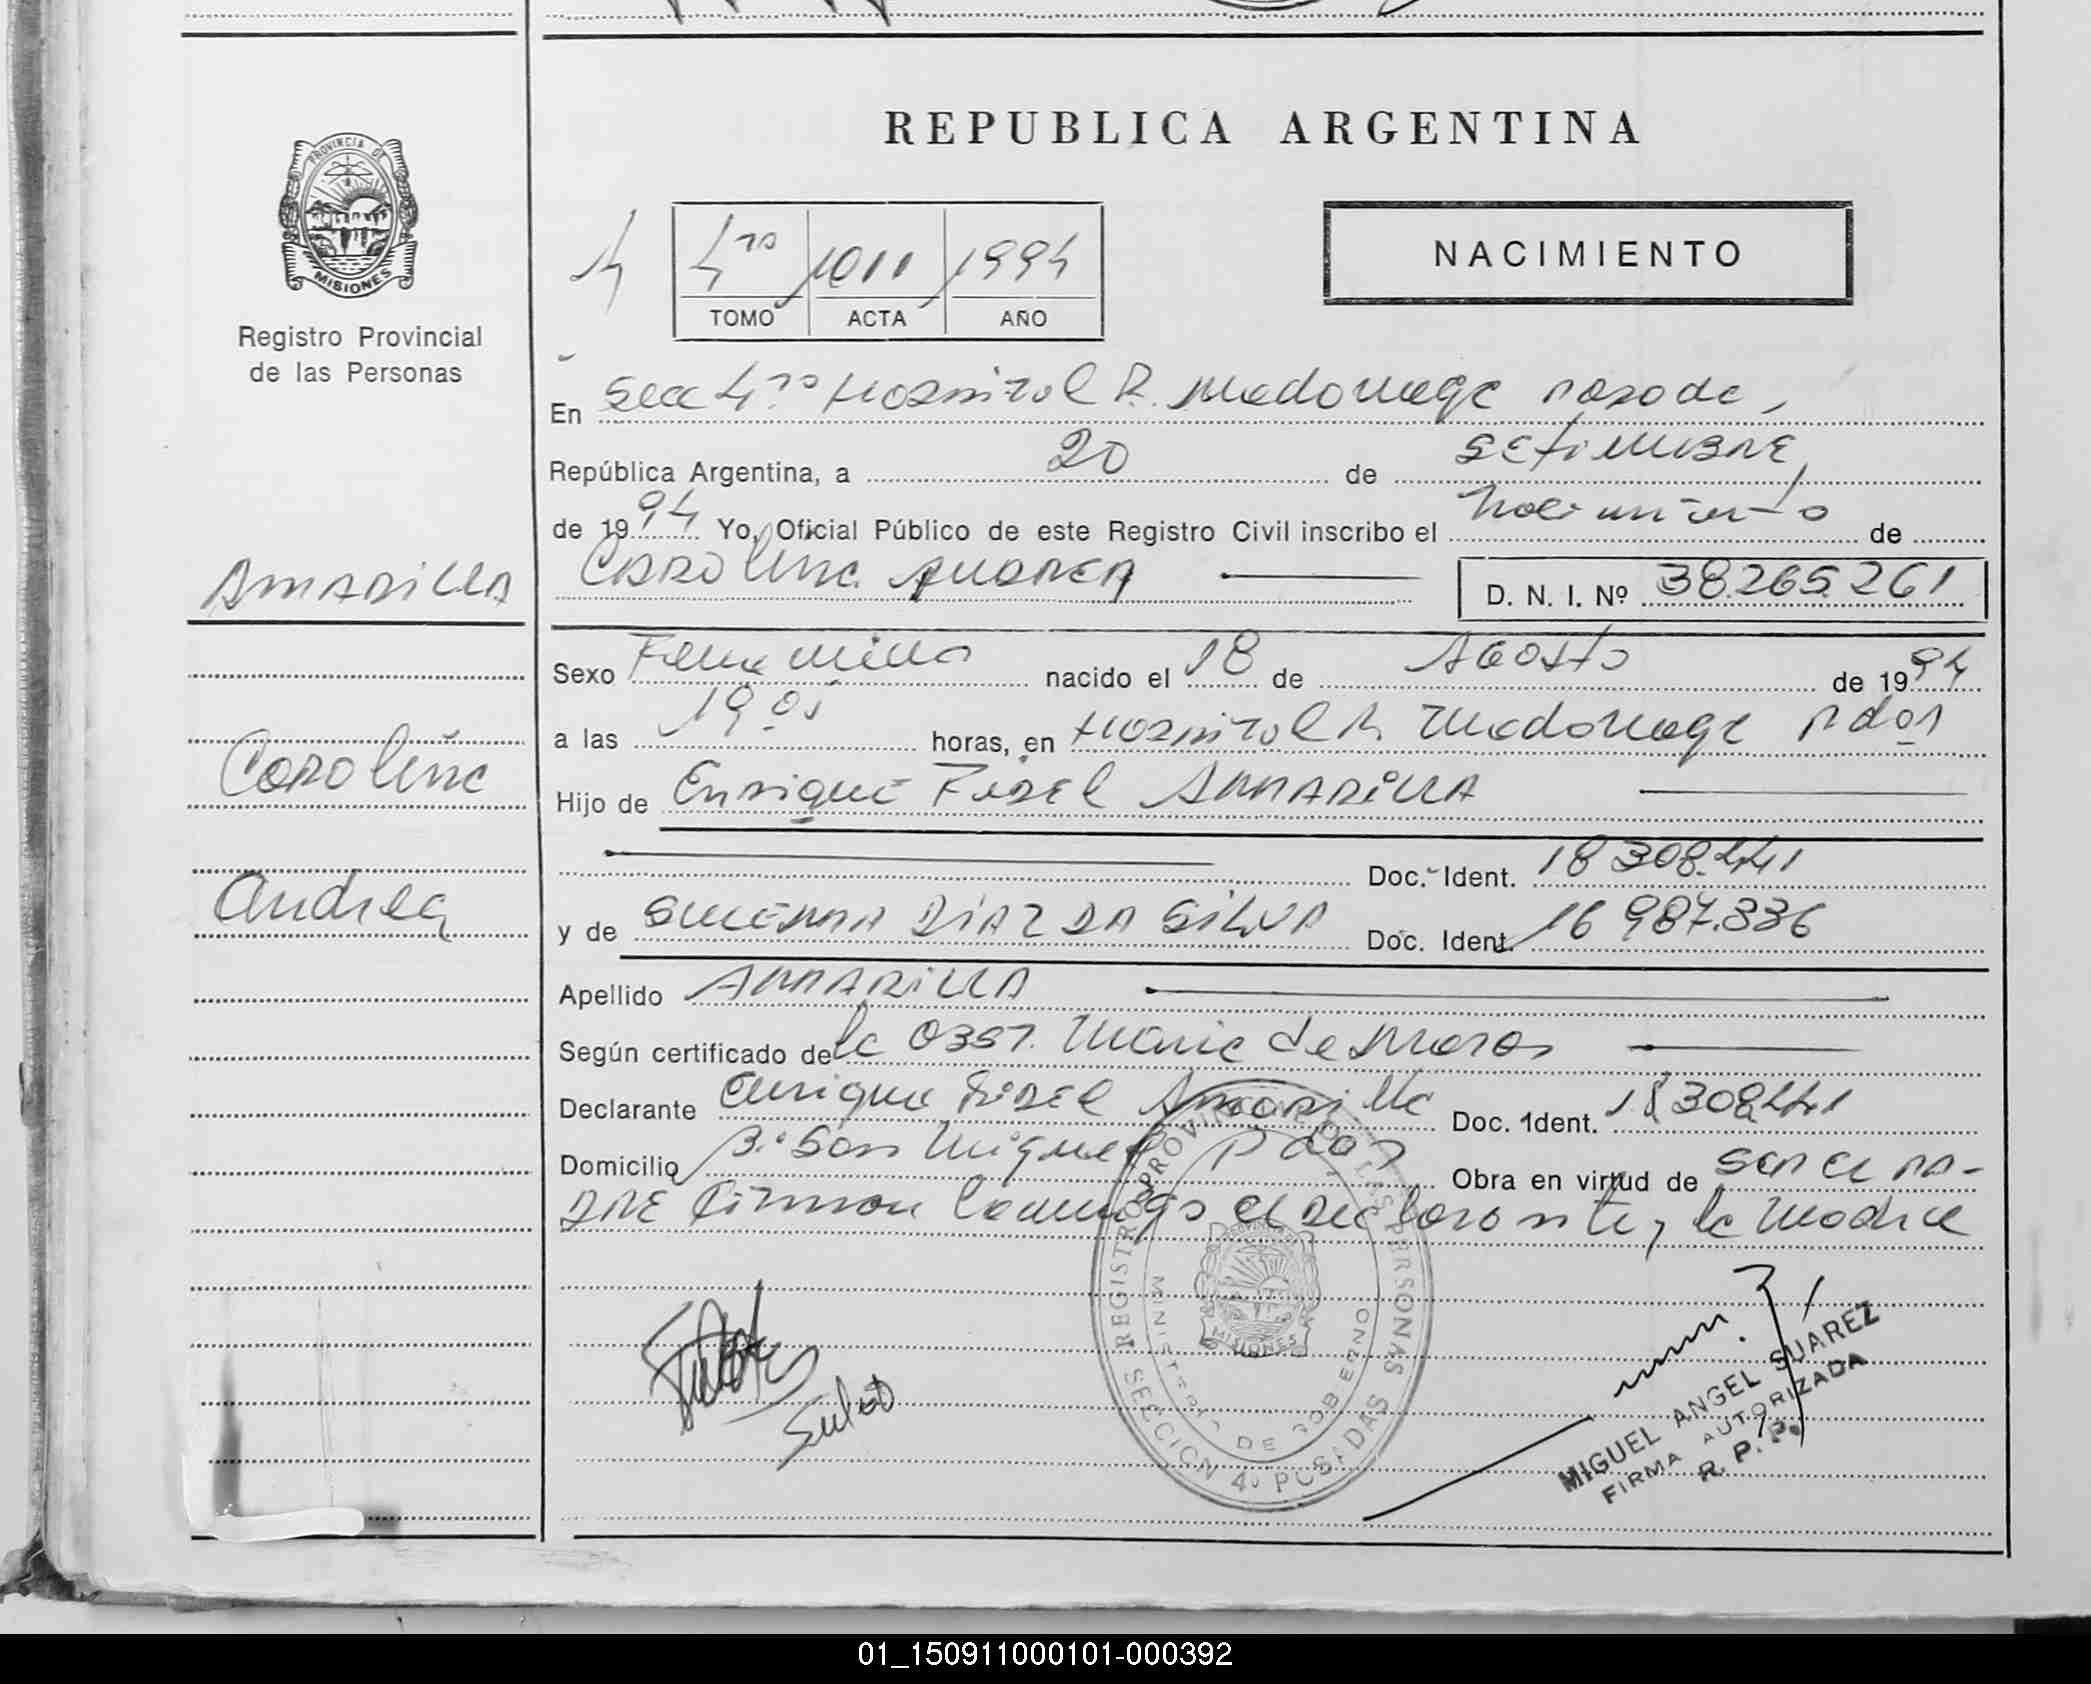 REPUBLICA ARGENTINA
PROVINCIA DE
MISIONES
Registro Provincial
de las Personas
4
4ro 1011 1994
TOMO ACTA AÑO
NACIMIENTO
En Secc 4ta Hospital R. Madariaga Posadas,
República Argentina, a 20 de SETIEMBRE,
de 1994 Yo, Oficial Público de este Registro Civil inscribo el Nacimiento de
AMARILLA
Carolina ANDREA D. N. I. Nº 38.265.261
Sexo Femenino nacido el 18 de AGOSTO de 1994
a las 19,05 horas, en Hospital R. Madariaga Pdas
Carolina
Hijo de Enrique FIDEL AMARILLA
Doc. Ident. 18 308.441
Andrea
y de DIAZ DA SILVA Doc. Ident. 16 987.336
Apellido AMARILLA
Según certificado de la Obst. Maria de
Declarante Enrique FIDEL Amarilla Doc. Ident. 18.308.441
Domicilio B. San Miguel Pdas Obra en virtud de SER EL PA-
DRE Firman conmigo el declarante y la Madre
REGISTRO PROVINCIAL DE LAS PERSONAS
MINISTERIO DE GOBIERNO
MISIONES
SECCION 4a POSADAS
MIGUEL ANGEL SUAREZ
FIRMA AUTORIZADA
R. P. P.
01_150911000101-000392